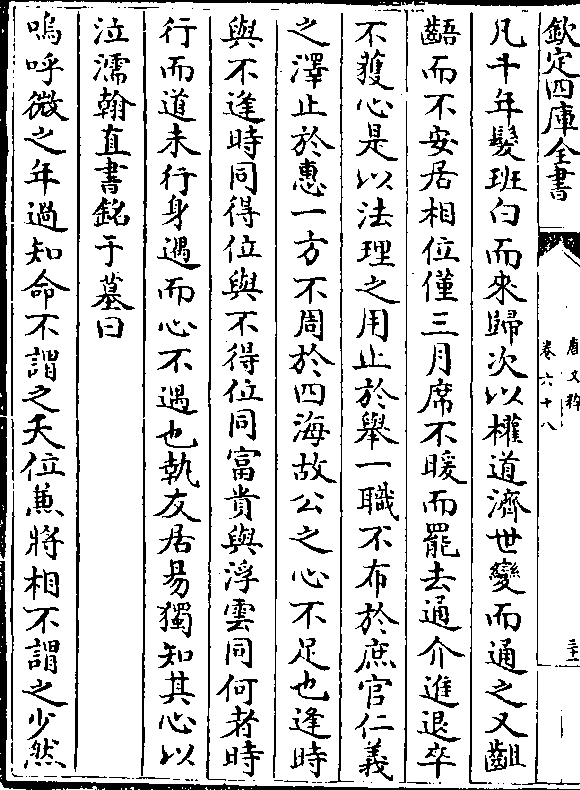 欽定四庫全書
唐文粹
卷六十八
凡千年髮班白而來歸次以權道濟世變而通之又齟
齬而不安居相位僅三月席不暖而罷去通介進退卒
不獲心是以法理之用止於舉一職不布於庶官仁義
之澤止於惠一方不周於四海故公之心不足也逢時
與不逢時同得位與不得位同富貴與浮雲同何者時
行而道未行身遇而心不遇也執友居易獨知其心以
泣濡翰直書銘于墓曰
嗚呼微之年過知命不謂之夭位兼將相不謂之少然